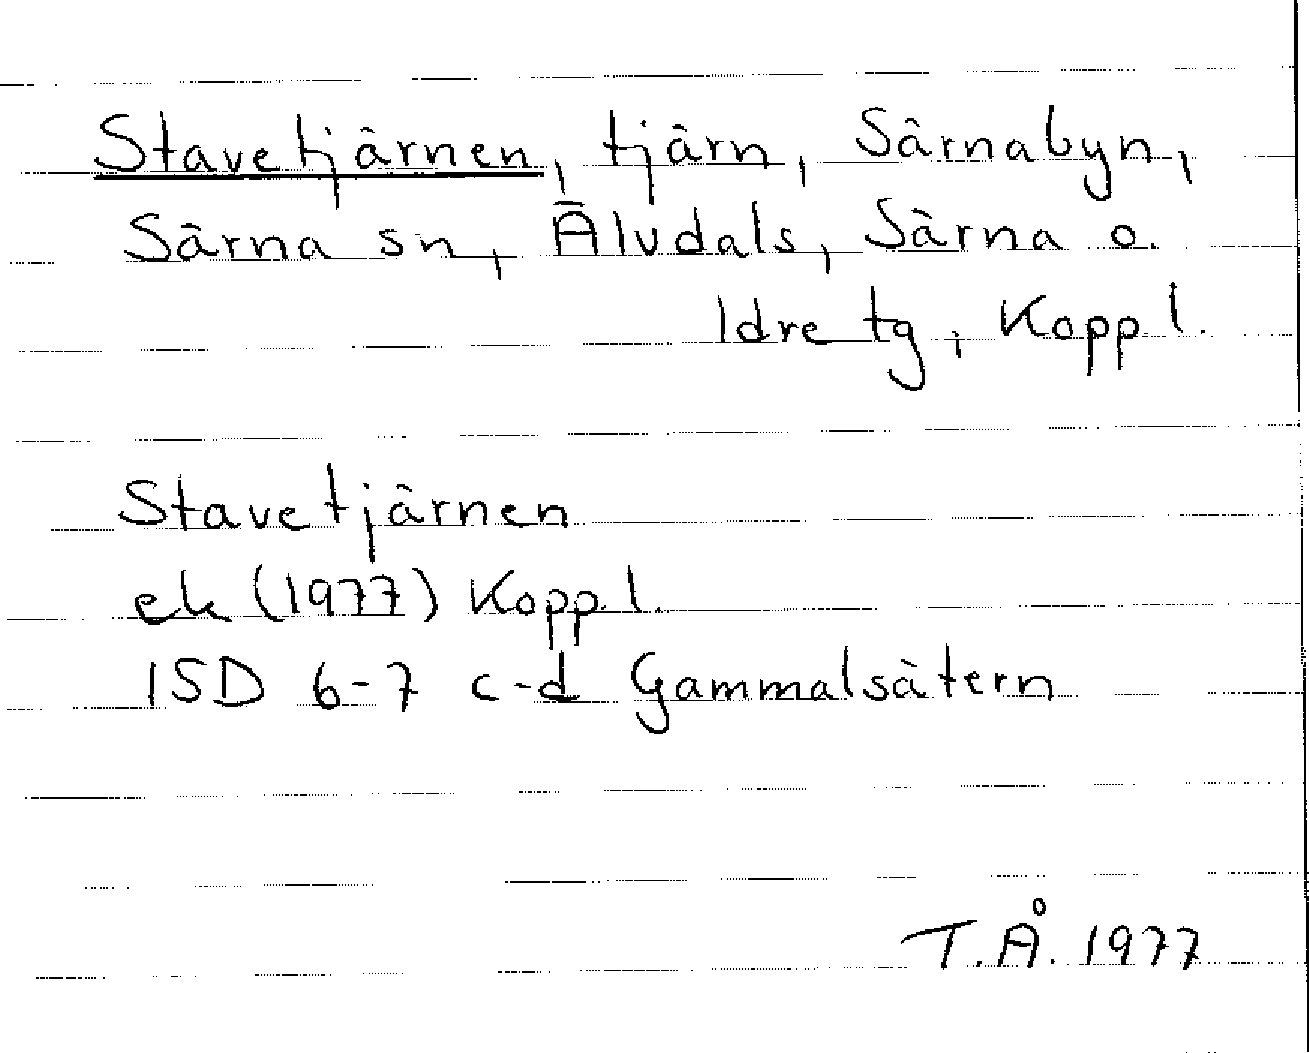 Stavetjärnen, tjärn, Särnabyn,
Särna sn, Älvdals, Särna o.
Idre tg, Kopp l.
Stavetjärnen
ek (1977) Kopp. l.
15D 6-7 c-d Gammalsätern
T.Å. 1977